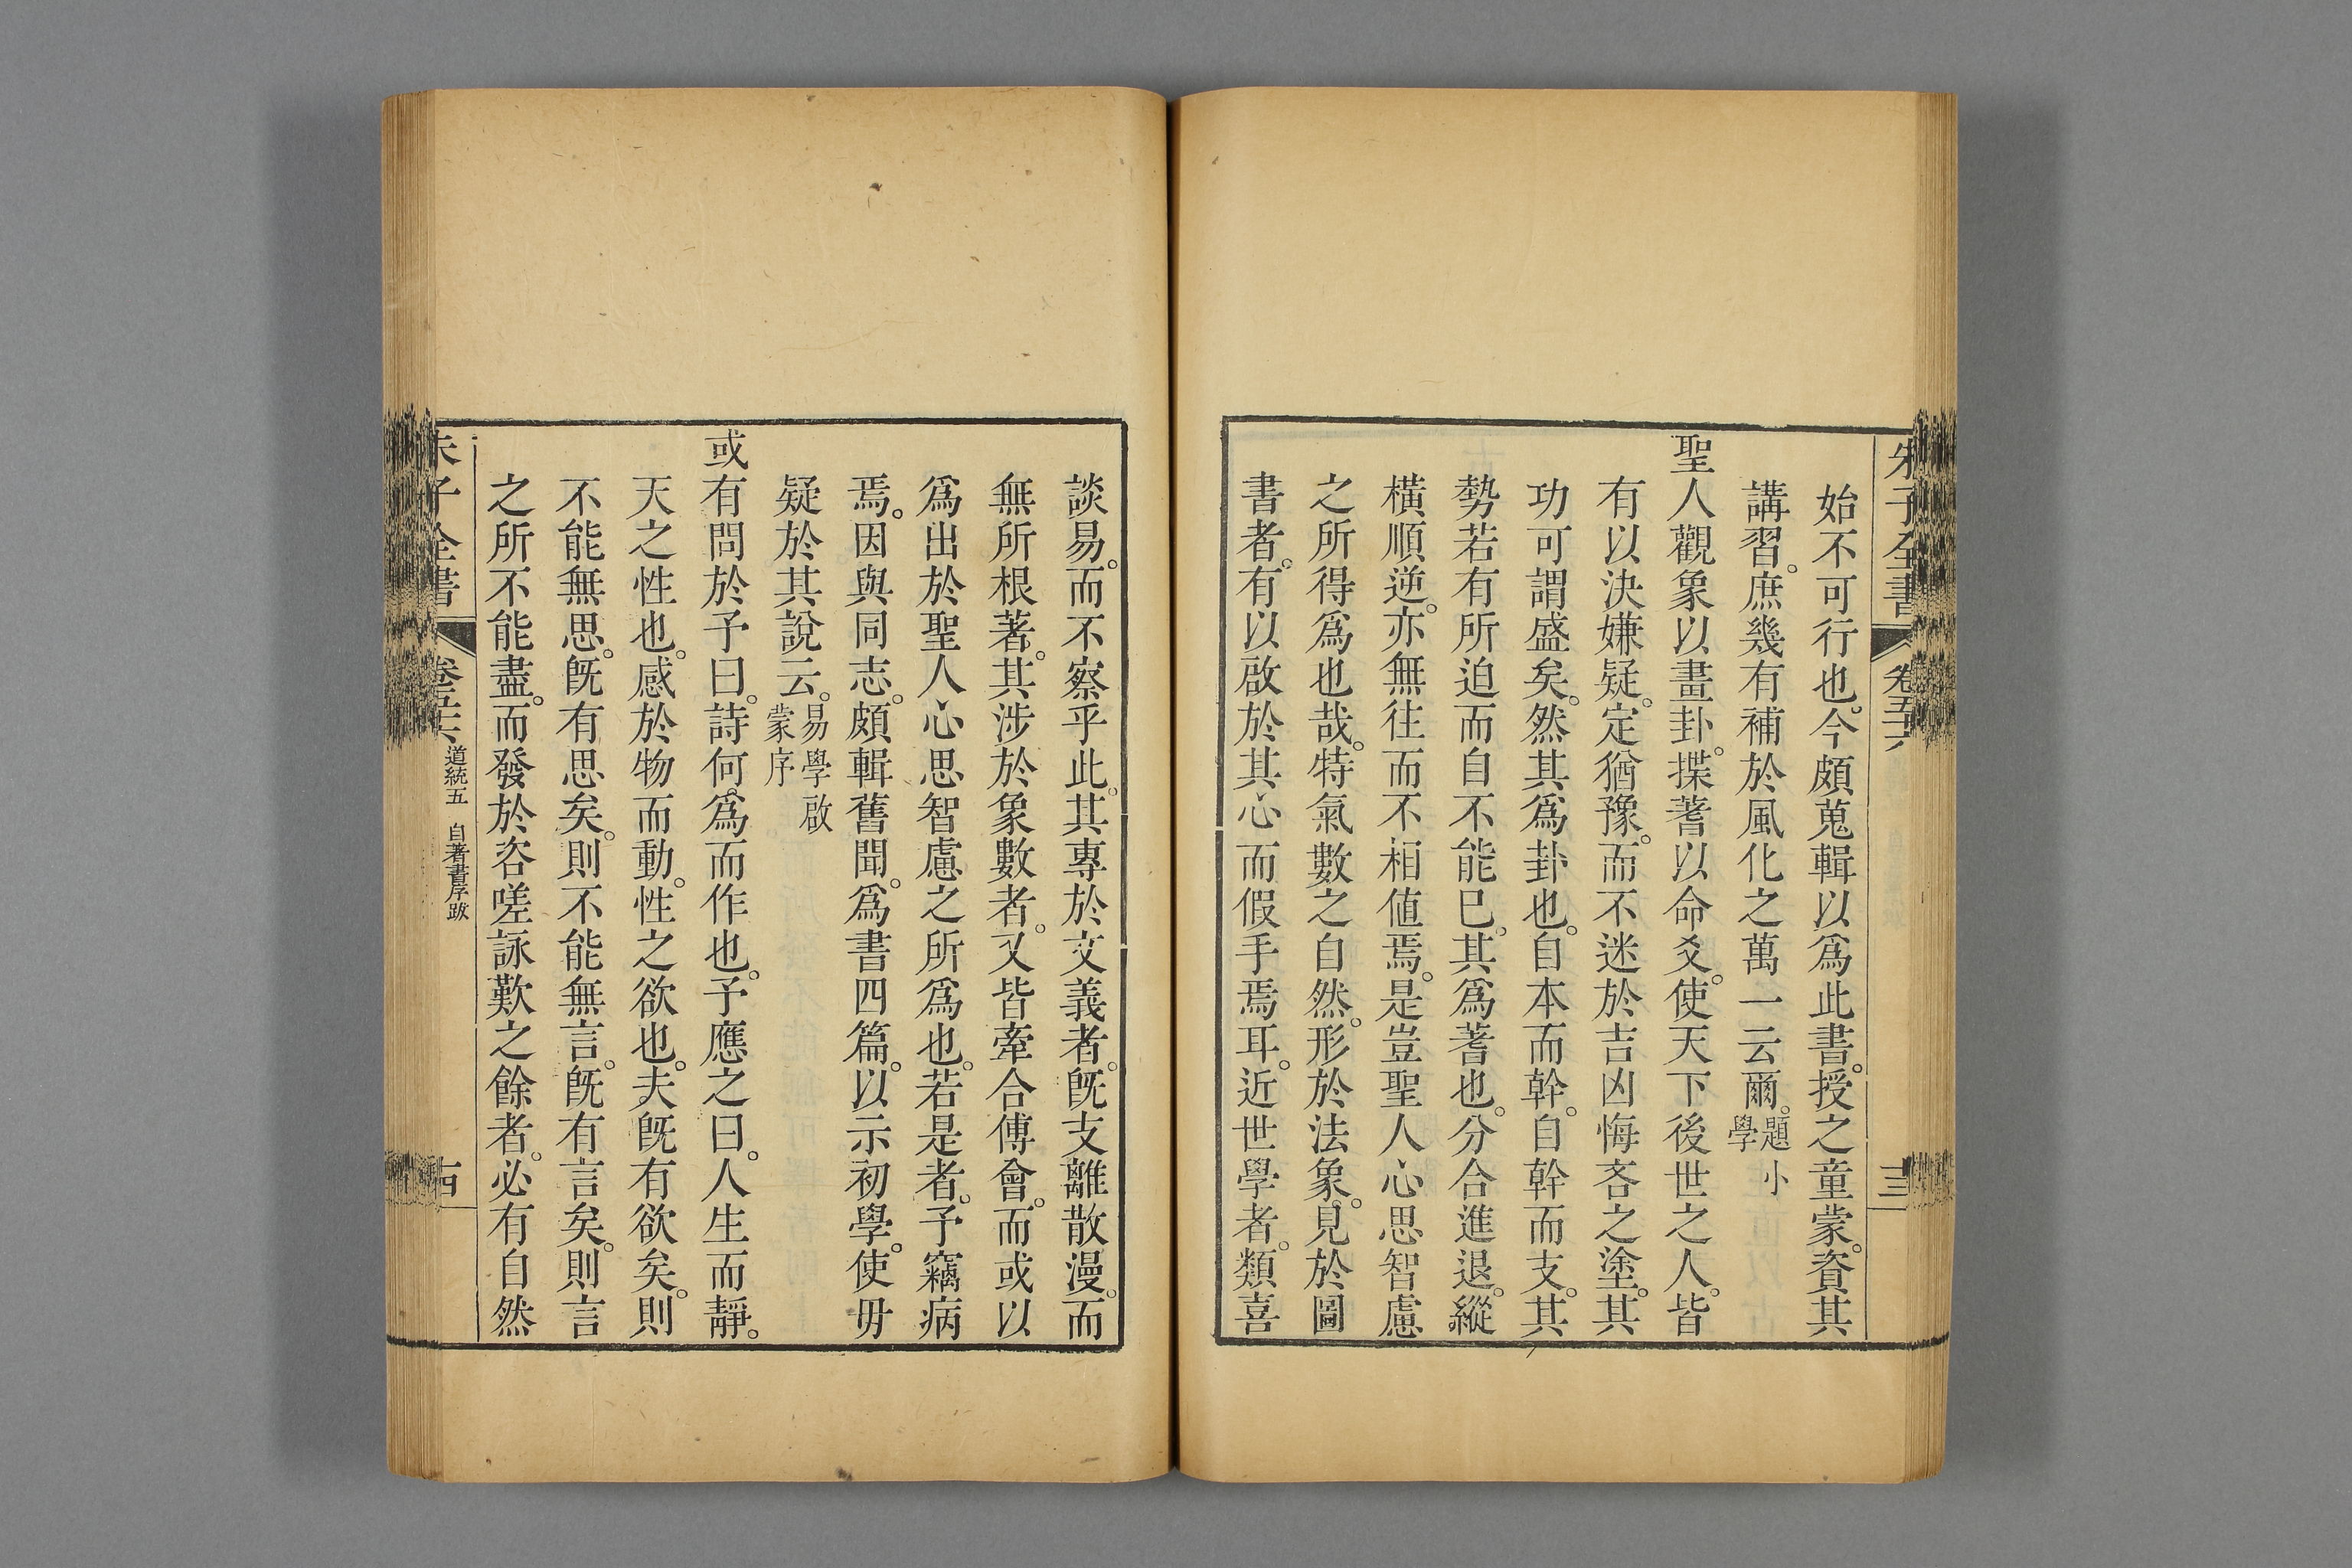 朱子全書 卷五六 十三
始不可行也。今頗蒐輯以爲此書。授之童蒙。資其
講習。庶幾有補於風化之萬一云爾。題小學
聖人觀象以畫卦。揲蓍以命爻。使天下後世之人。皆
有以決嫌疑。定猶豫。而不迷於吉凶悔吝之塗。其
功可謂盛矣。然其爲卦也。自本而幹。自幹而支。其
勢若有所迫而自不能已。其爲蓍也。分合進退。縱
橫順逆。亦無往而不相値焉。是豈聖人心思智慮
之所得爲也哉。特氣數之自然。形於法象。見於圖
書者。有以啟於其心而假手焉耳。近世學者。類喜
談易。而不察乎此。其專於文義者。旣支離散漫。而
無所根著。其涉於象數者。又皆牽合傅會。而或以
爲出於聖人心思智慮之所爲也。若是者。予竊病
焉。因與同志。頗輯舊聞。爲書四篇。以示初學。使毋
疑於其說云。易學啟蒙序
或有問於予曰。詩何爲而作也。予應之曰。人生而靜。
天之性也。感於物而動。性之欲也。夫旣有欲矣。則
不能無思。旣有思矣。則不能無言。旣有言矣。則言
之所不能盡。而發於咨嗟詠歎之餘者。必有自然
朱子全書 卷五六 道統五 自著書序跋 十四